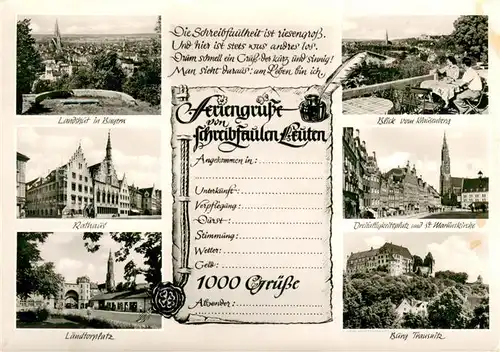 Die Schreibfaulheit ist riesengroß.
Und hier ist stets was andres los.
Drum schnell ein Gruß der kurz und sinnig!
Man sieht daraus: am Leben bin ich.
Landshut in Bayern
Rathaus
Ländtorplatz
Feriengrüße
von
schreibfaulen Leuten
Angekommen in:
Unterkunft:
Verpflegung:
Durst:
Stimmung:
Wetter:
Geld:
1000 Grüße
Absender:
Blick vom Klausenberg
Dreifaltigkeitsplatz und St. Martinskirche
Burg Trausnitz